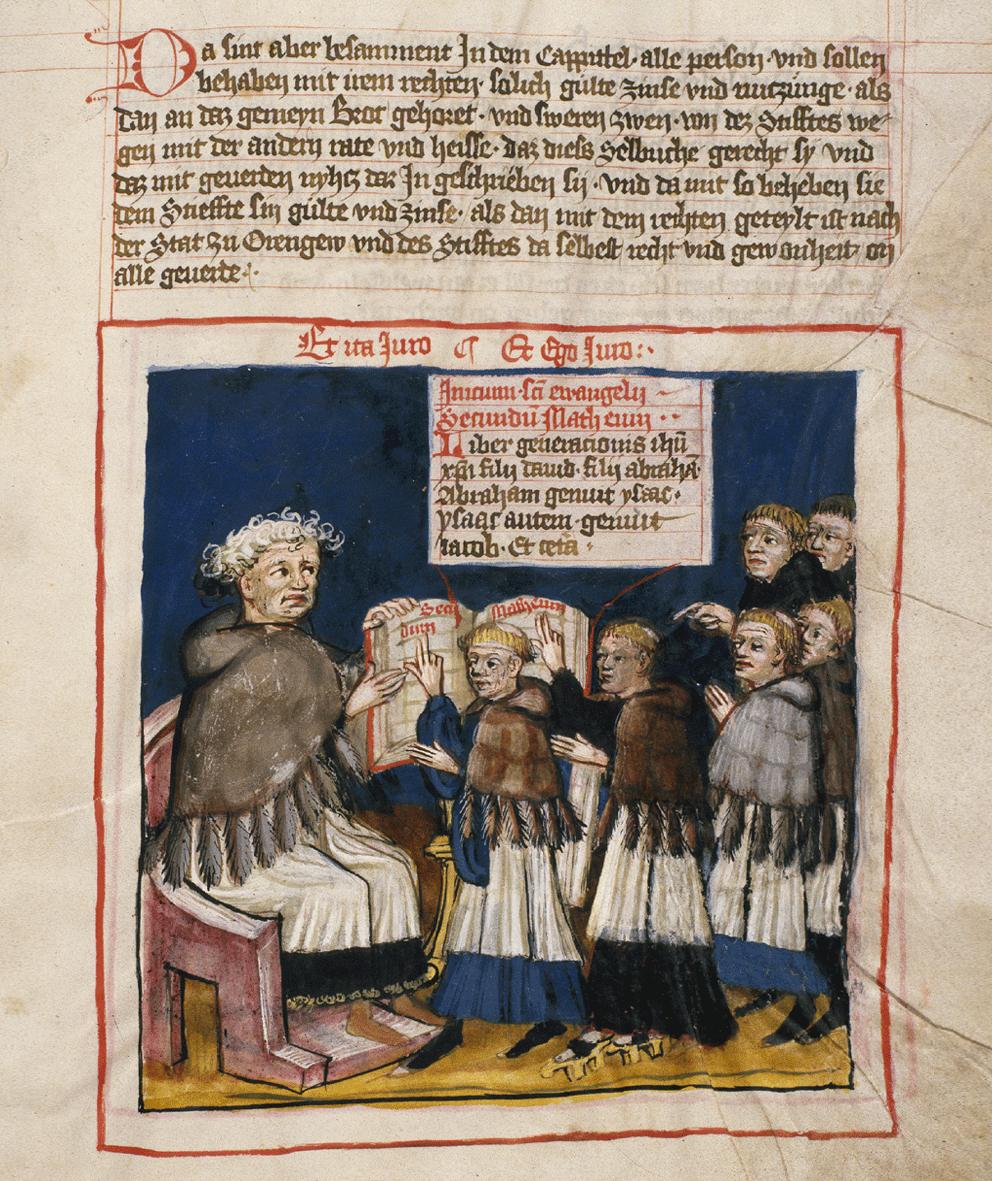 Da sint aber besamment In dem Cappittel · alle person · vnd sollen
behaben mit irem rechten · solich gülte zinse vnd nuczünge · als
dan an daz gemeyn Brot gehoret · vnd sweren zwen · von dez Stifftes we-
gen mit der andern rate vnd heisse · daz diess Selbuche gerecht sy vnd
daz mit geuerden nyhcz dar In geschrieben sij · vnd da mit so beheben sie
dem Stieffte sin gülte vnd zinse · als dan mit dem rechten geteylt ist nach
der Stat zu Orengew vnd des Stifftes da selbest recht vnd gewonheit on
alle geuerte ·
Et ita Juro ¶ Et Ego Juro :·
Inicium · sci ewangelij
Secundu Matheum ··
Liber generacionis ihu
xpi filij dauid · filij abraha ·
Abraham genuit ysac ·
ysaac autem · genuit
iacob · Et cetera ·
Secun
dum
Matheum